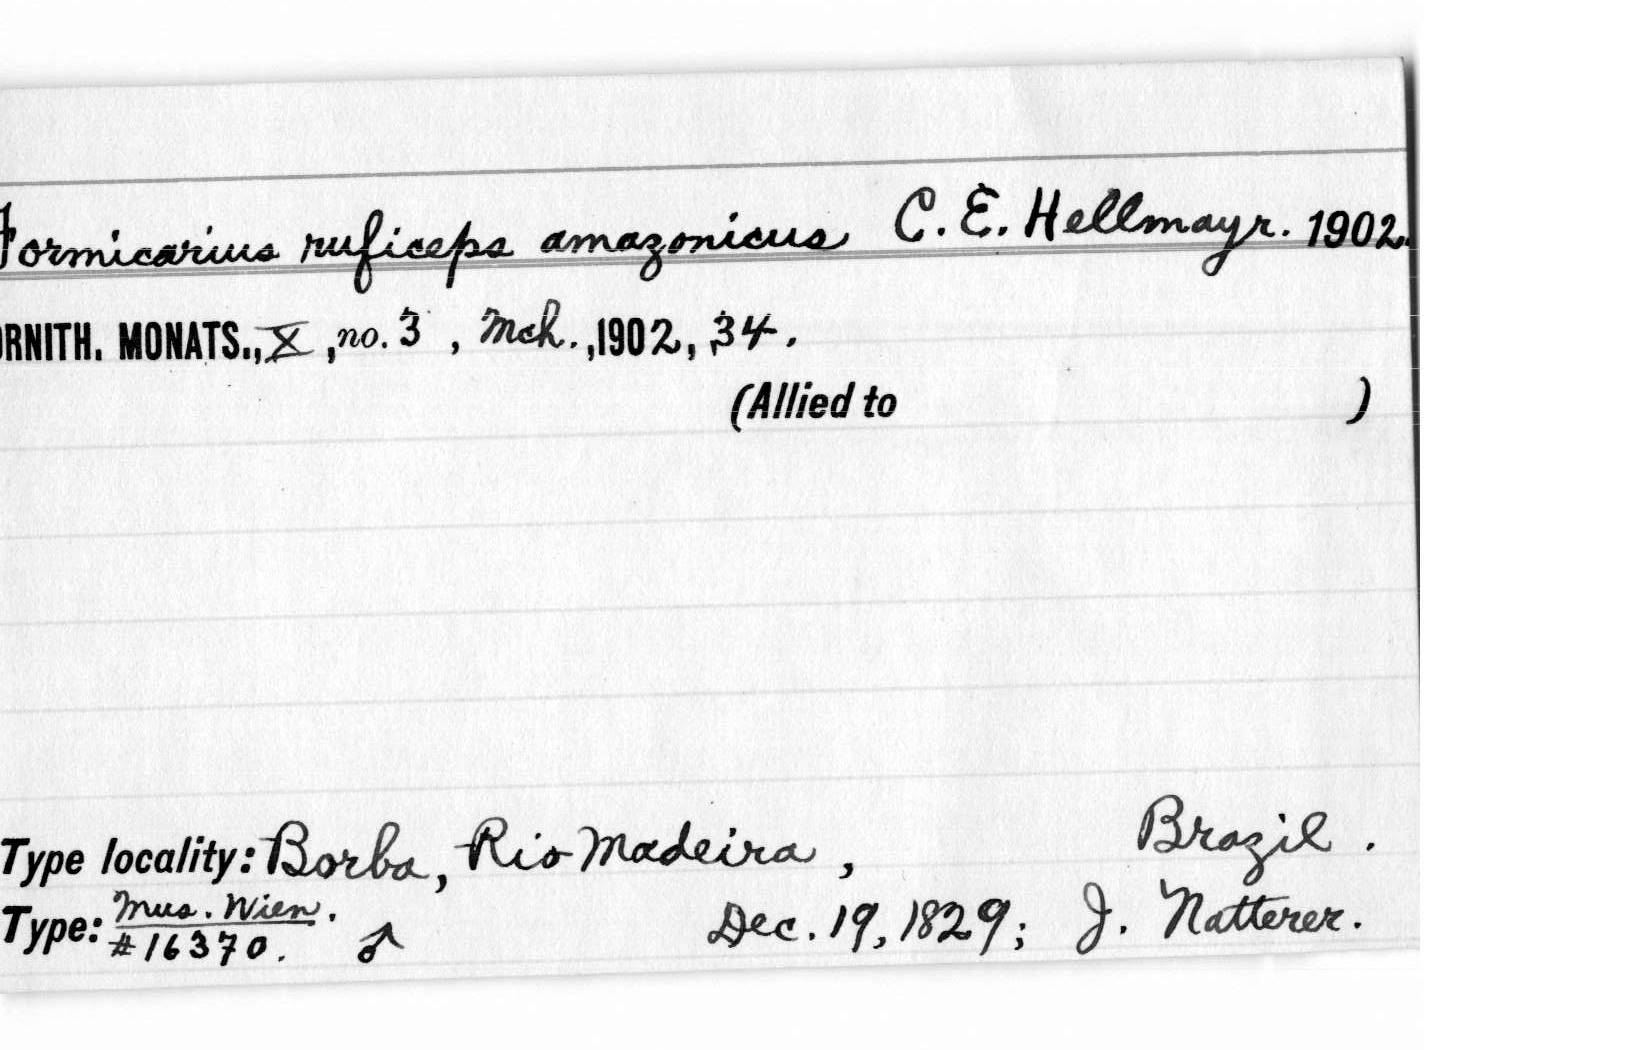 Formicarius ruficeps amazonicus C. E. Hellmayr. 1902.
ORNITH. MONATS., X, no. 3, Mch., 1902, 34.
(Allied to )
Type locality: Borba, Rio Madeira, Brazil.
Type: Mus. Wien. ♂ Dec. 19, 1829; J. Natterer.
#16370.